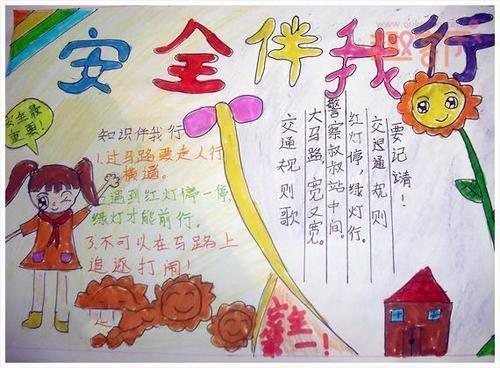 安全伴我行
安全最
重要!
知识伴我行
1.过马路要走人行
横道。
2.遇到红灯停一停,
绿灯才能前行。
3.不可以在马路上
追逐打闹!
交通规则歌
大马路,宽又宽。
警察叔叔站中间。
红灯停,绿灯行。
交通规则
要记清!